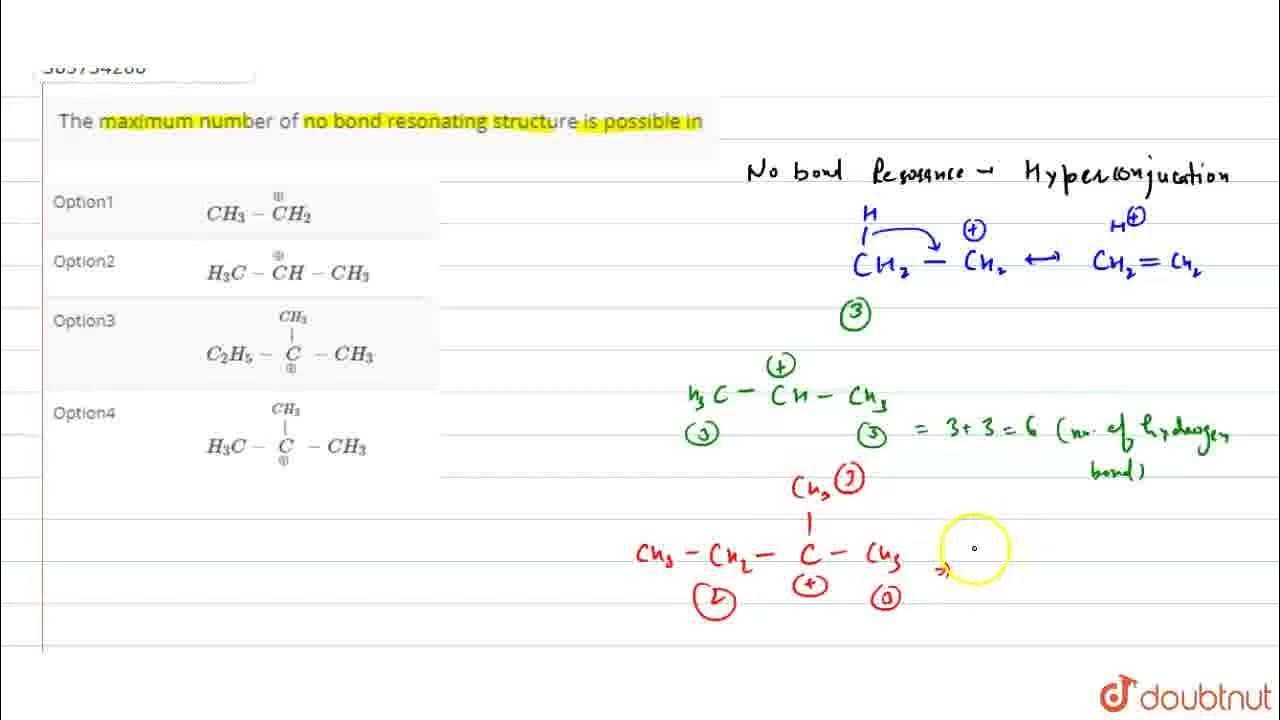 The maximum number of no bond resonating structure is possible in
Option1
⊕
CH3 – CH2
Option2
⊕
H3C – CH – CH3
Option3
CH3
|
C2H5 – C – CH3
⊕
Option4
CH3
|
H3C – C – CH3
⊕
No bond Resonance → Hyperconjucation
H
|
⊕
H⊕
CH2 – CH2 ↔ CH2 = CH2
3
⊕
H3C – CH – CH3
3 3 = 3+3=6 (no. of hydrogen
bond)
CH3 3
|
CH3 – CH2 – C – CH3 ⇒
2 ⊕
doubtnut